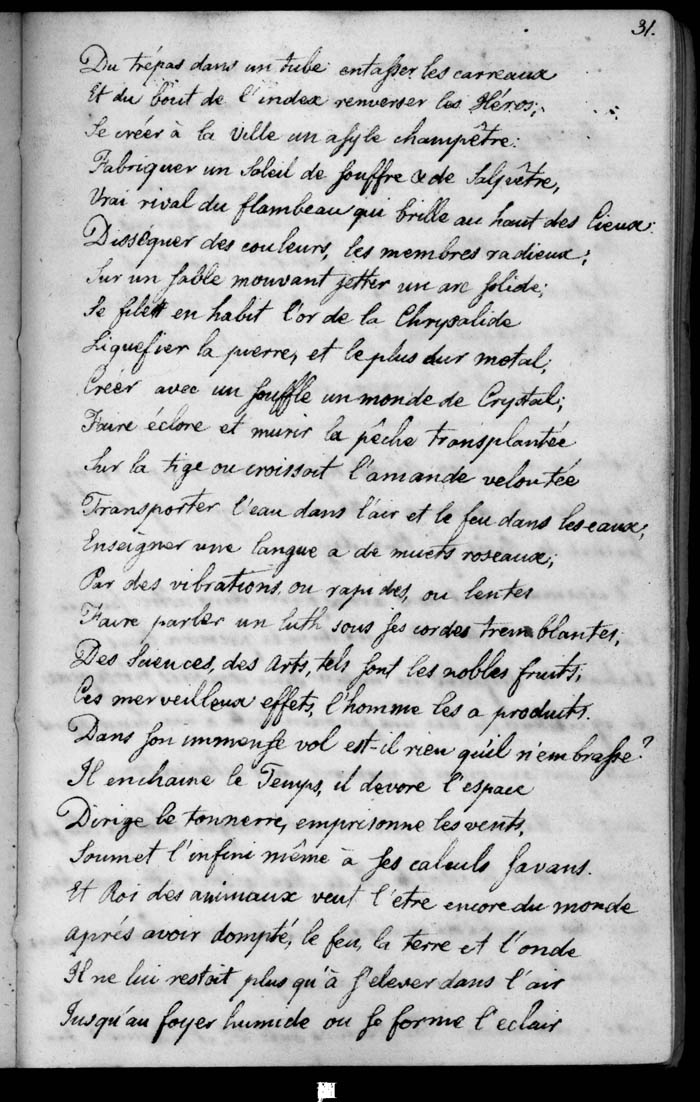 31.
Du trépas dans un tube entasser les carreaux
Et du bout de l'index renverser les Héros;
Se créer à la Ville un asyle champêtre:
Fabriquer un Soleil de souffre & de Salpêtre,
Vrai rival du flambeau qui brille au haut des Cieux:
Disséquer des couleurs, les membres radieux;
Sur un sable mouvant jetter un arc solide;
Se filer en habit l'or de la Chrysalide
Liquefier la pierre, et le plus dur metal;
Créer avec un souffle un monde de Crystal;
Faire éclore et murir la pêche transplantée
Sur la tige ou croissoit l'amande veloutée
Transporter l'eau dans l'air et le feu dans les eaux;
Enseigner une langue a de muets roseaux;
Par des vibrations, ou rapides, ou lentes
Faire parler un luth sous ses cordes tremblantes;
Des Sciences, des Arts, tels sont les nobles fruits;
Ces merveilleux effets, l'homme les a produits.
Dans son immense vol est-il rien qu'il n'embrasse?
Il enchaine le Temps, il devore l'espace
Dirige le tonnerre, emprisonne les vents,
Soumet l'infini même à ses calculs savans.
Et Roi des animaux veut l'être encore du monde
Aprés avoir dompté, le feu, la terre et l'onde
Il ne lui restoit plus qu'à s'elever dans l'air
Jusqu'au foyer humide ou se forme l'eclair